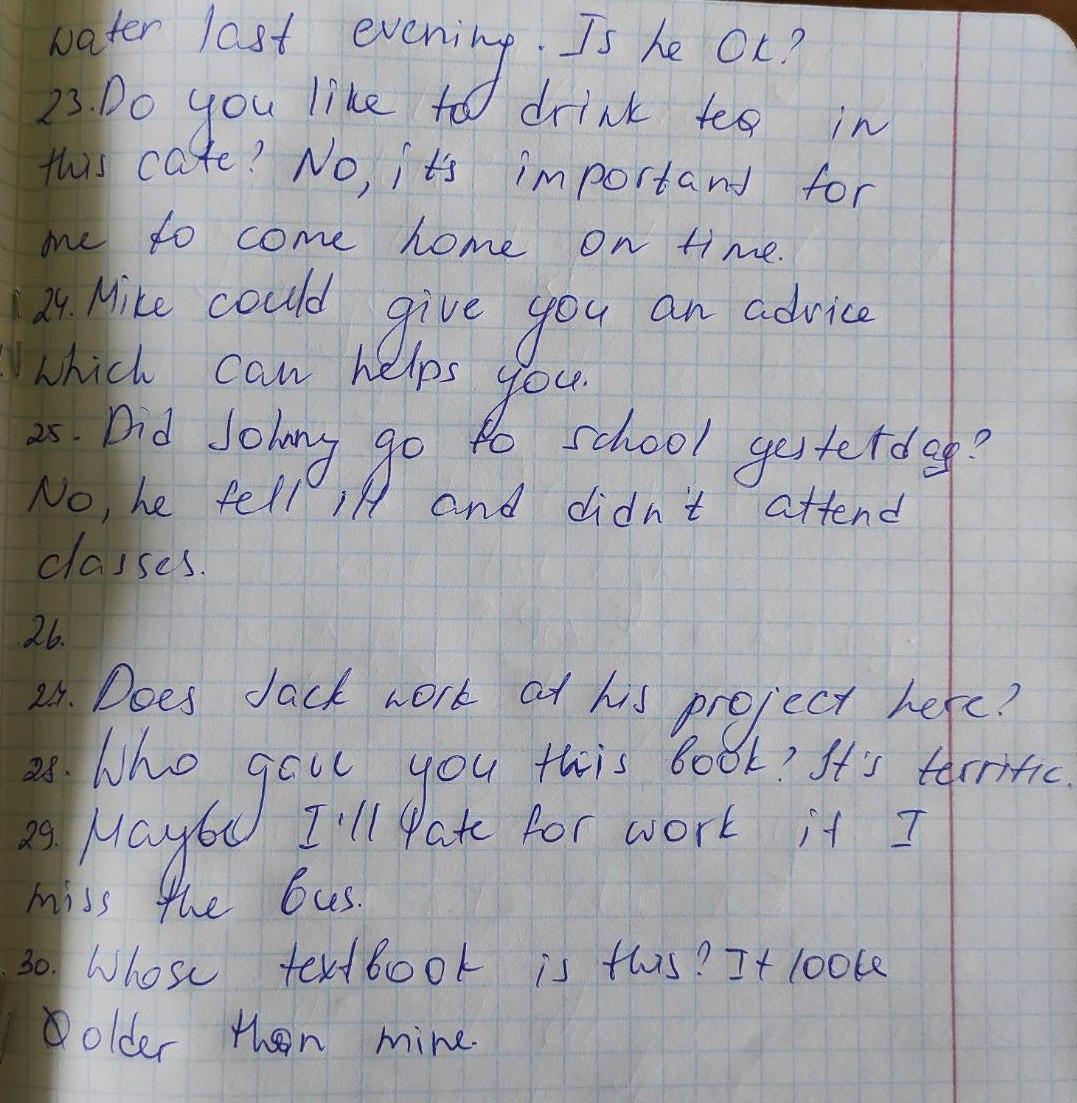 water last evening. Is he Ok?
23. Do you like to drink tea in
this cafe? No, it's important for
me to come home on time.
24. Mike could give you an advice
which can helps you.
25. Did Johnny go to school yesterday?
No, he fell ill and didn't attend
classes.
26.
27. Does Jack work at his project here?
28. Who gave you this book? It's terrific.
29. Maybe I'll late for work if I
miss the bus.
30. Whose textbook is this? It looks
older than mine.